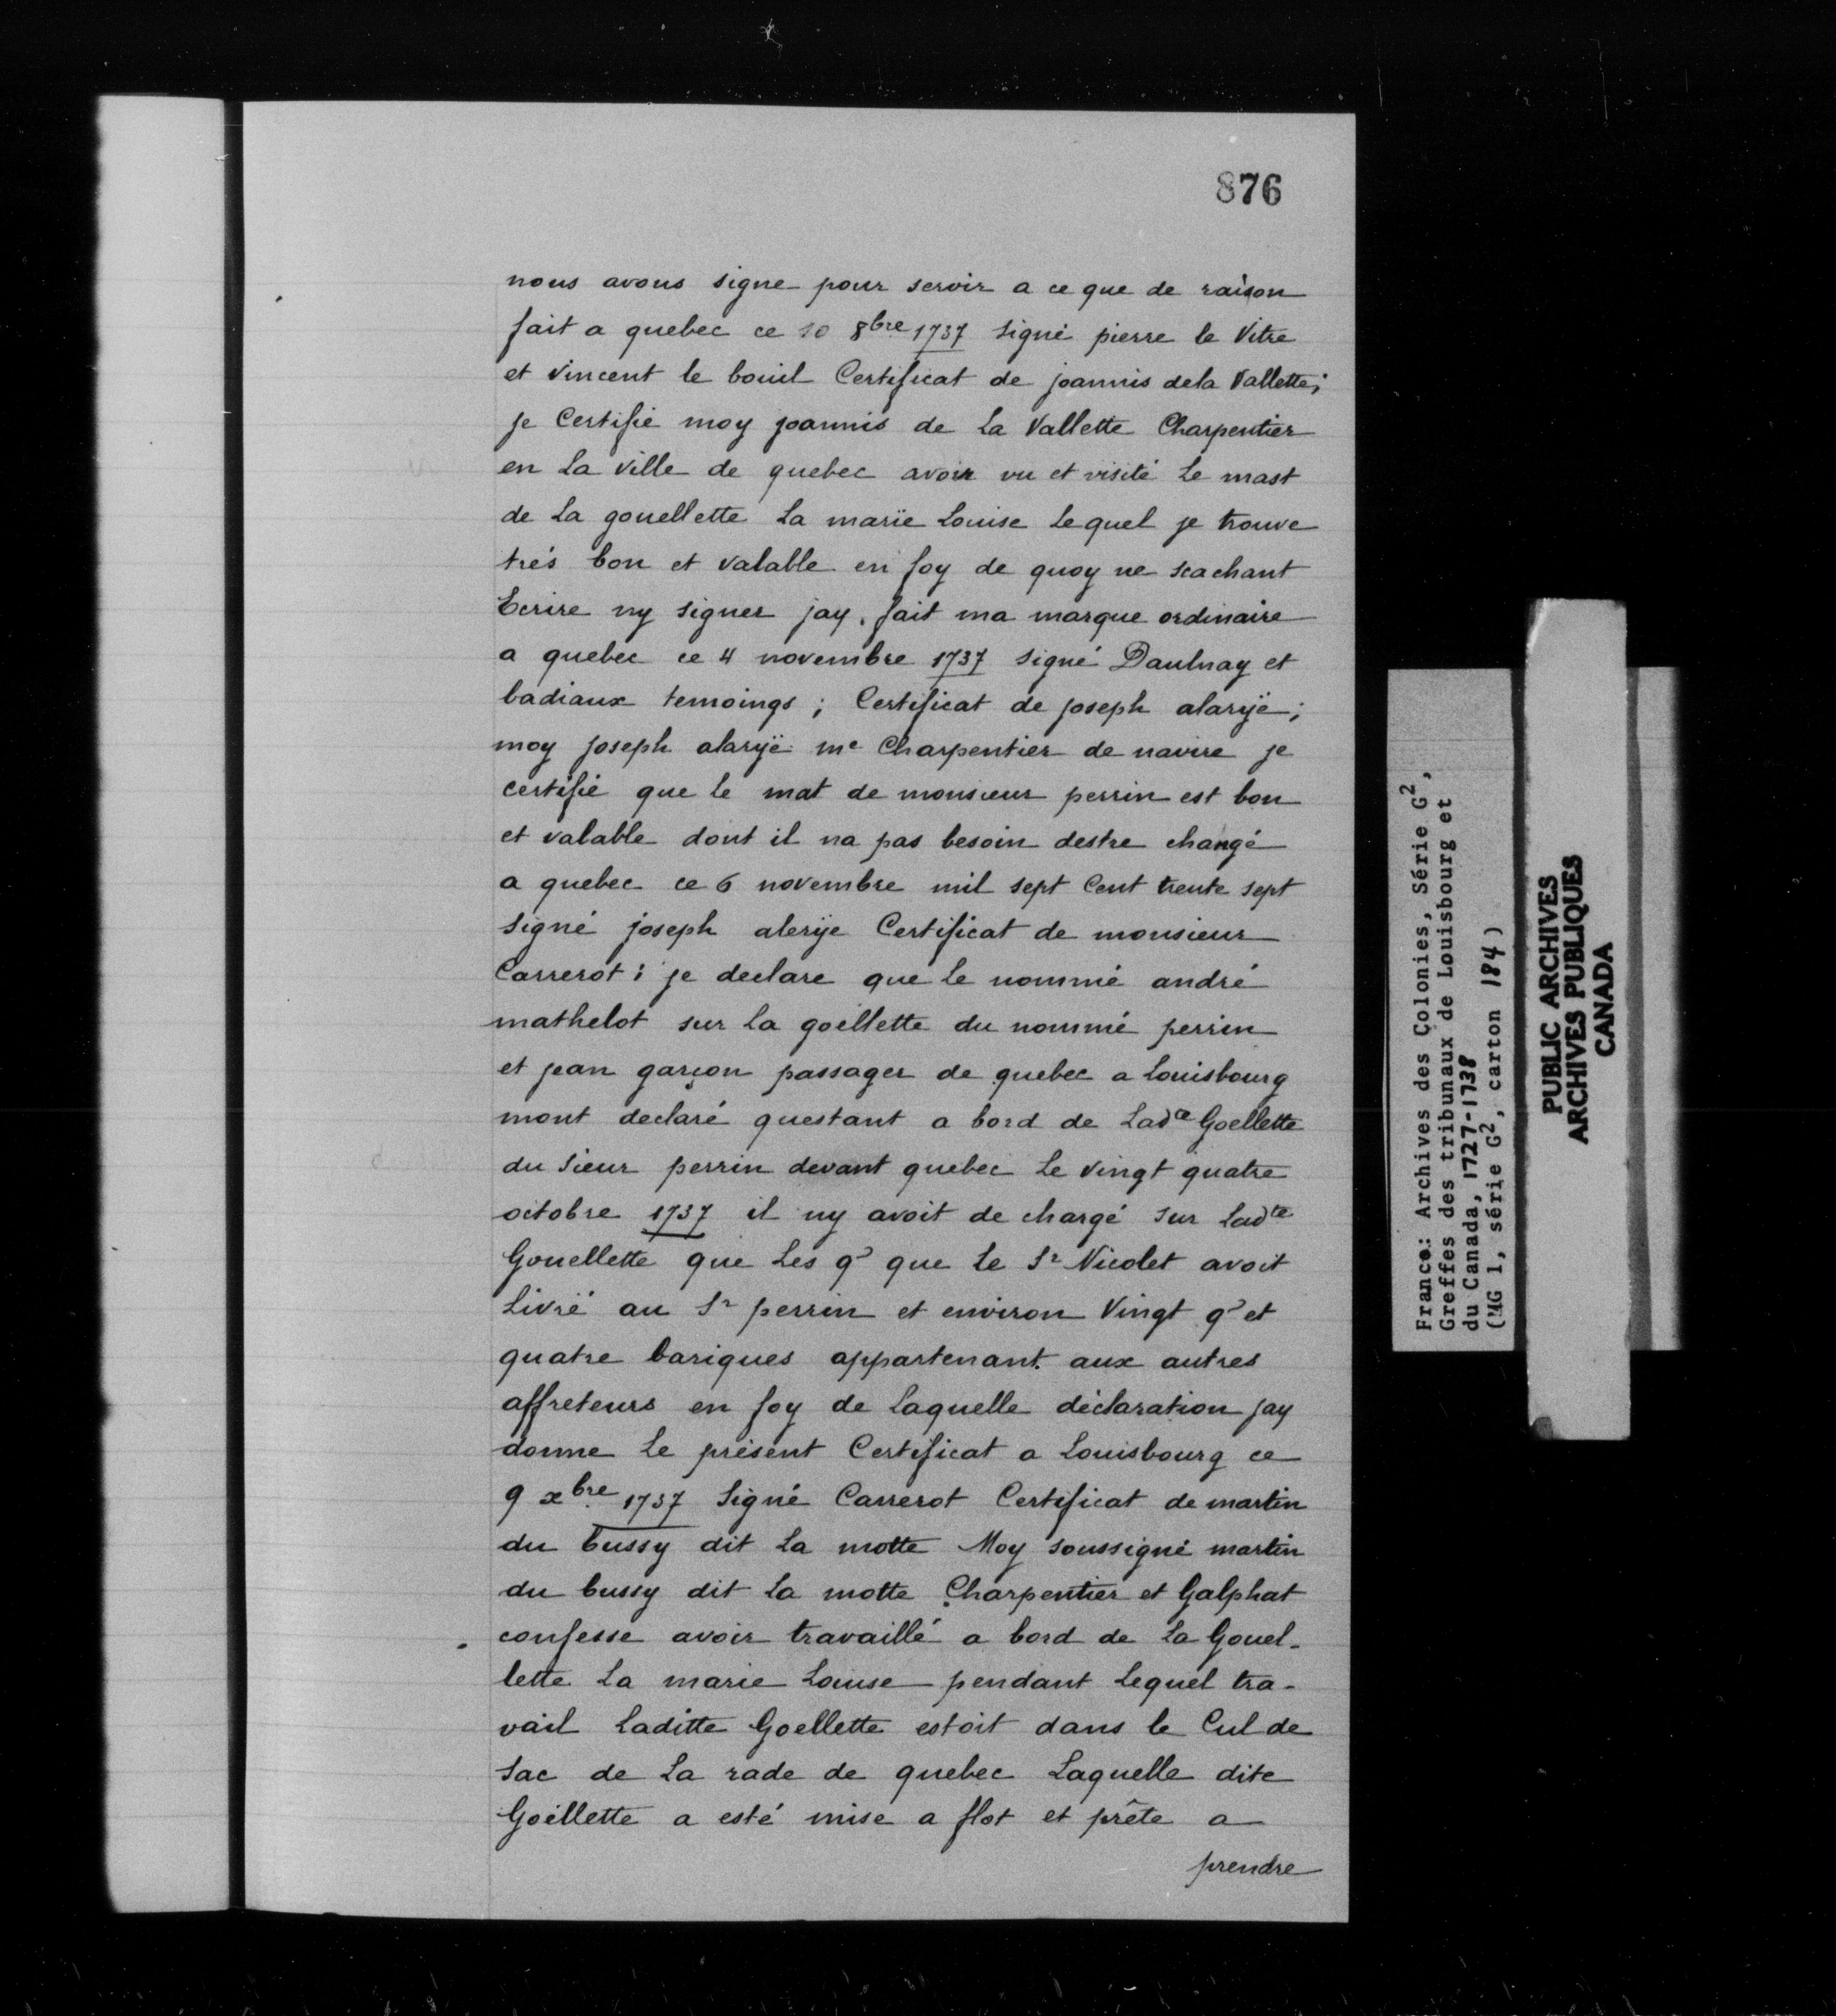 876
nous avons signe pour servir a ce que de raison
fait a quebec ce 10 8bre 1737 signé pierre le Vitre
et vincent le bouil Certificat de joannis dela Vallette;
je Certifie moy joannis de La Vallette Charpentier
en La ville de quebec avoir vu et visité Le mast
de La gouellette La marïe Louise Lequel je trouve
trés bon et valable en foy de quoy ne scachant
Ecrire ny signer jay fait ma marque ordinaire
a quebec ce 4 novembre 1737 signé Daulnay et
badiaux temoings ; Certificat de joseph alarÿe;
moy joseph alarÿe me Charpentier de navire je
certifie que Le mat de monsieur perrin est bon
et valable dont il na pas besoin destre changé
a quebec ce 6 novembre mil sept Cent trente sept
signé joseph alerÿe Certificat de monsieur
Carrerot : je declare que Le nommé andré
mathelot sur La goëllette du nommé perrin
et jean garçon passager de quebec a Louisbourg
mont declaré questant a bord de Ladte Goellette
du Sieur perrin devant quebec Le vingt quatre
octobre 1737 il ny avoit de chargé sur Ladte
Gouellette que Les qs que Le Sr Nicolet avoit
Livré au Sr perrin et environ Vingt qs et
quatre bariques appartenant aux autres
affreteurs en foy de Laquelle déclaration jay
donne Le présent Certificat a Louisbourg ce
9 xbre 1737 Signé Carrerot Certificat de martin
du bussy dit La motte Moy soussigné martin
du bussy dit La motte Charpentier et Galphat
confesse avoir travaillé a bord de La Gouel-
lette La marie Louise pendant Lequel tra-
vail Laditte Goellette estoit dans le Cul de
Sac de La rade de quebec Laquelle dite
Goëllette a esté mise a flot et prête a
prendre
France: Archives des Colonies, Série G2,
Greffes des tribunaux de Louisbourg et
du Canada, 1727-1738
(MG 1, série G2, carton 184)
PUBLIC ARCHIVES
ARCHIVES PUBLIQUES
CANADA